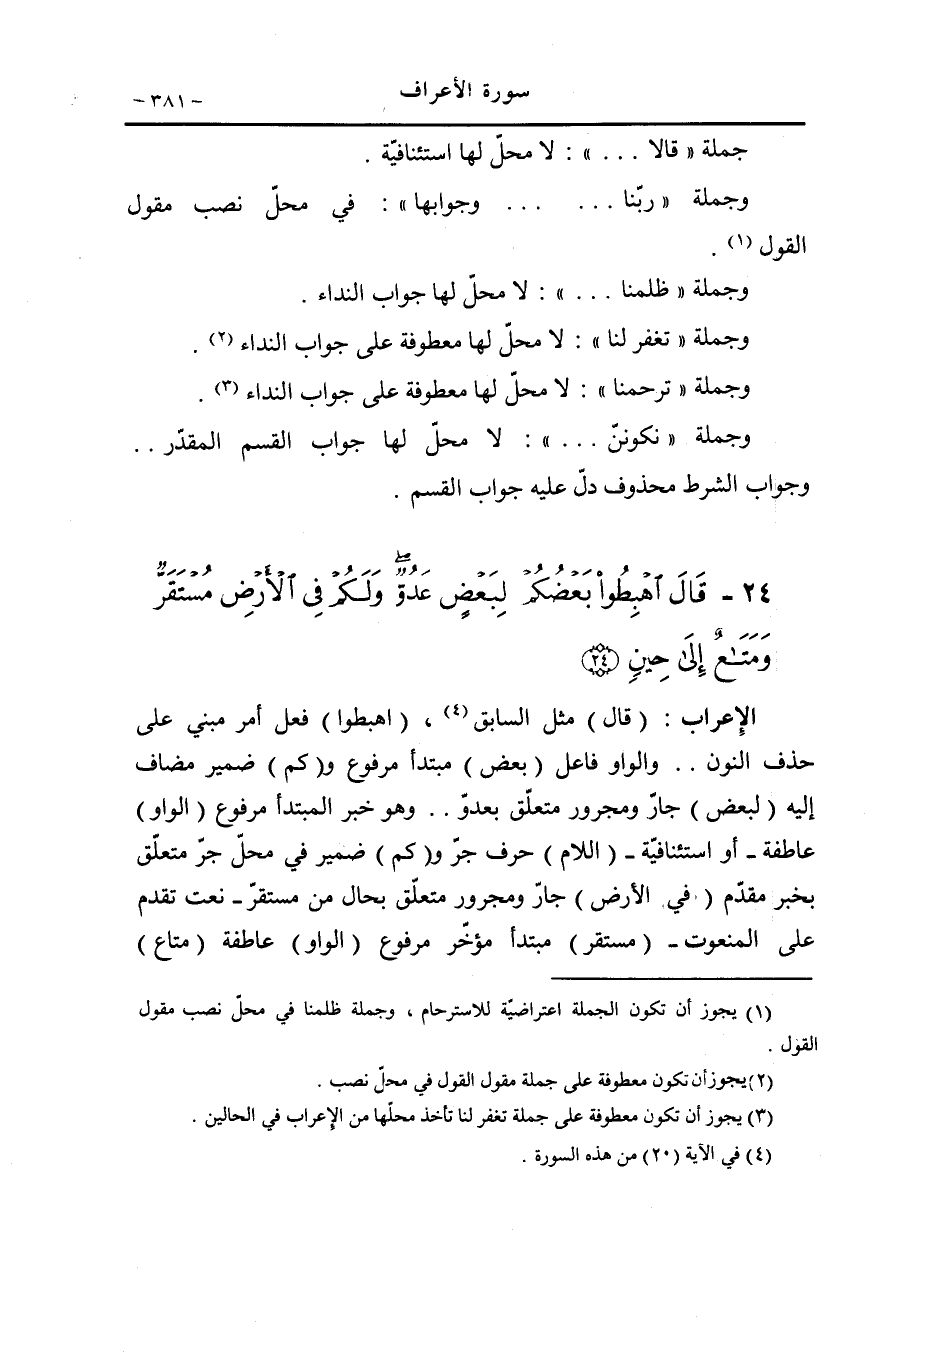 سورة الأعراف
- ٣٨١ -
جملة « قالا ... » : لا محلّ لها استئنافيّة .
وجملة « ربّنا ... ... وجوابها » : في محلّ نصب مقول
القول (١) .
وجملة « ظلمنا ... » : لا محلّ لها جواب النداء .
وجملة « تغفر لنا » : لا محلّ لها معطوفة على جواب النداء (٢) .
وجملة « ترحمنا » : لا محلّ لها معطوفة على جواب النداء (٣) .
وجملة « نكوننّ ... » : لا محلّ لها جواب القسم المقدّر ..
وجواب الشرط محذوف دلّ عليه جواب القسم .
٢٤ - قَالَ ٱهْبِطُوا۟ بَعْضُكُمْ لِبَعْضٍ عَدُوٌّ ۖ وَلَكُمْ فِى ٱلْأَرْضِ مُسْتَقَرٌّ
وَمَتَـٰعٌ إِلَىٰ حِينٍ (٢٤)
الإعراب : ( قال ) مثل السابق (٤) ، ( اهبطوا ) فعل أمر مبني على
حذف النون .. والواو فاعل ( بعض ) مبتدأ مرفوع و( كم ) ضمير مضاف
إليه ( لبعض ) جارّ ومجرور متعلّق بعدوّ .. وهو خبر المبتدأ مرفوع ( الواو )
عاطفة - أو استئنافيّة - ( اللام ) حرف جرّ و( كم ) ضمير في محلّ جرّ متعلّق
بخبر مقدّم ( في الأرض ) جارّ ومجرور متعلّق بحال من مستقرّ - نعت تقدم
على المنعوت - ( مستقر ) مبتدأ مؤخّر مرفوع ( الواو ) عاطفة ( متاع )
(١) يجوز أن تكون الجملة اعتراضيّة للاسترحام ، وجملة ظلمنا في محلّ نصب مقول
القول .
(٢) يجوز أن تكون معطوفة على جملة مقول القول في محلّ نصب .
(٣) يجوز أن تكون معطوفة على جملة تغفر لنا تأخذ محلّها من الإعراب في الحالين .
(٤) في الآية (٢٠) من هذه السورة .